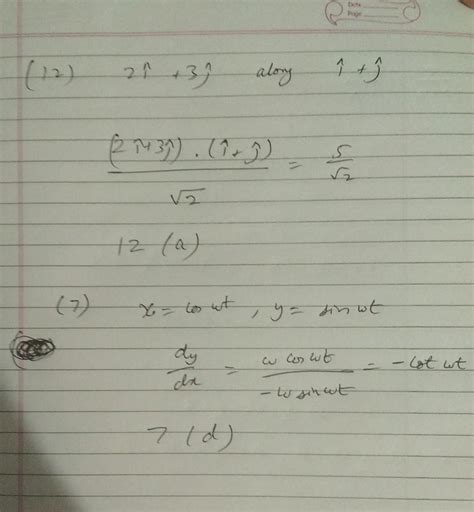 Date
Page
(12) 2î + 3ĵ along î + ĵ
(2î+3ĵ) . (î + ĵ) / √2 = 5/√2
12 (a)
(7) x = cos wt , y = sin wt
dy/dx = w cos wt / -w sin wt = - cot wt
7 (d)